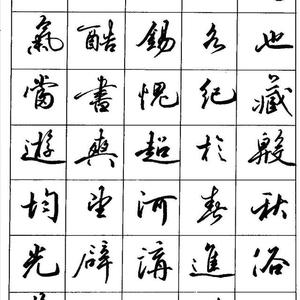 也藏殷秋浴
名紀於春進
錫愧超河講
酷書與望辟
氣當遊均光